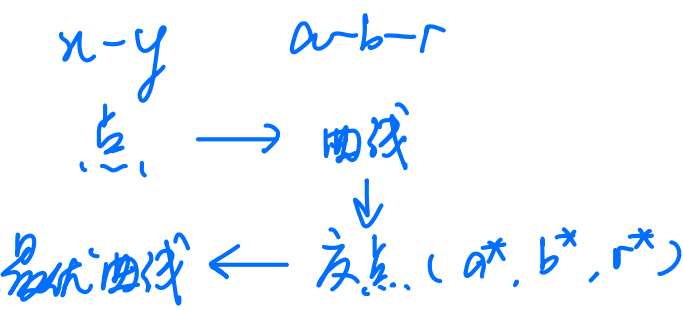 x-y a-b-r
点 → 曲线
↓
最优曲线 ← 交点(a*, b*, r*)